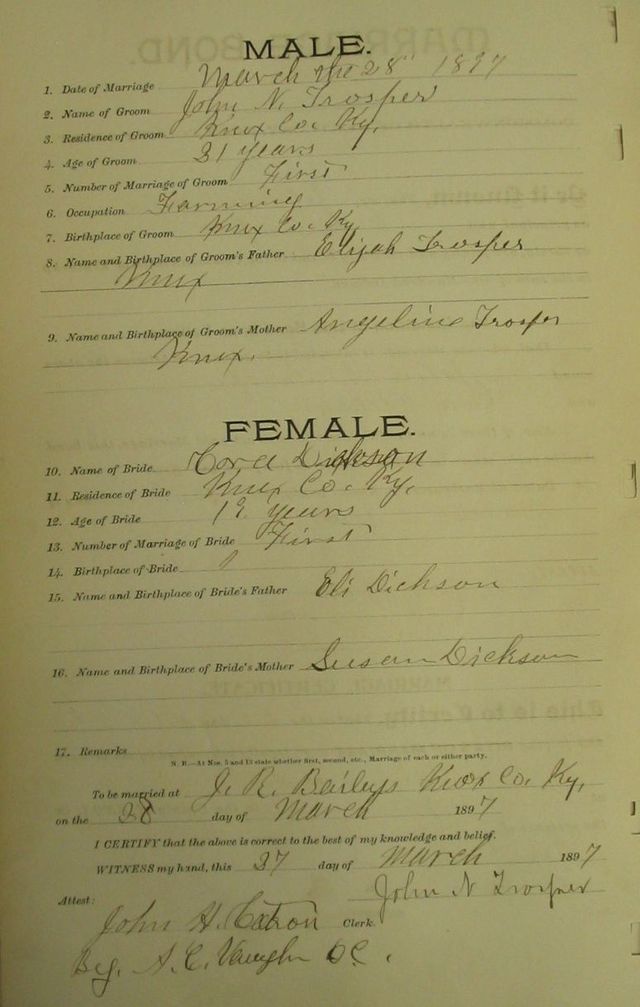 MALE.
1. Date of Marriage March the 28" 1897
2. Name of Groom John N. Trosper
3. Residence of Groom Knox Co. Ky.
4. Age of Groom 21 years
5. Number of Marriage of Groom First
6. Occupation Farming
7. Birthplace of Groom Knox Co. Ky
8. Name and Birthplace of Groom's Father Elijah Trosper
Knox
9. Name and Birthplace of Groom's Mother Angeline Trosper
Knox.
FEMALE.
10. Name of Bride Cora Dickson
11. Residence of Bride Knox Co. Ky.
12. Age of Bride 19 years
13. Number of Marriage of Bride First
14. Birthplace of Bride
15. Name and Birthplace of Bride's Father Eli Dickson
16. Name and Birthplace of Bride's Mother Susan Dickson
17. Remarks
N. B.—At Nos. 5 and 13 state whether first, second, etc., Marriage of each or either party.
To be married at J. R. Baileys Knox Co. Ky,
on the 28 day of March 1897
I CERTIFY that the above is correct to the best of my knowledge and belief.
WITNESS my hand, this 27 day of March 1897
John N Trosper
Attest:
John H. Catron Clerk
By. A. C. Vaughn DC.